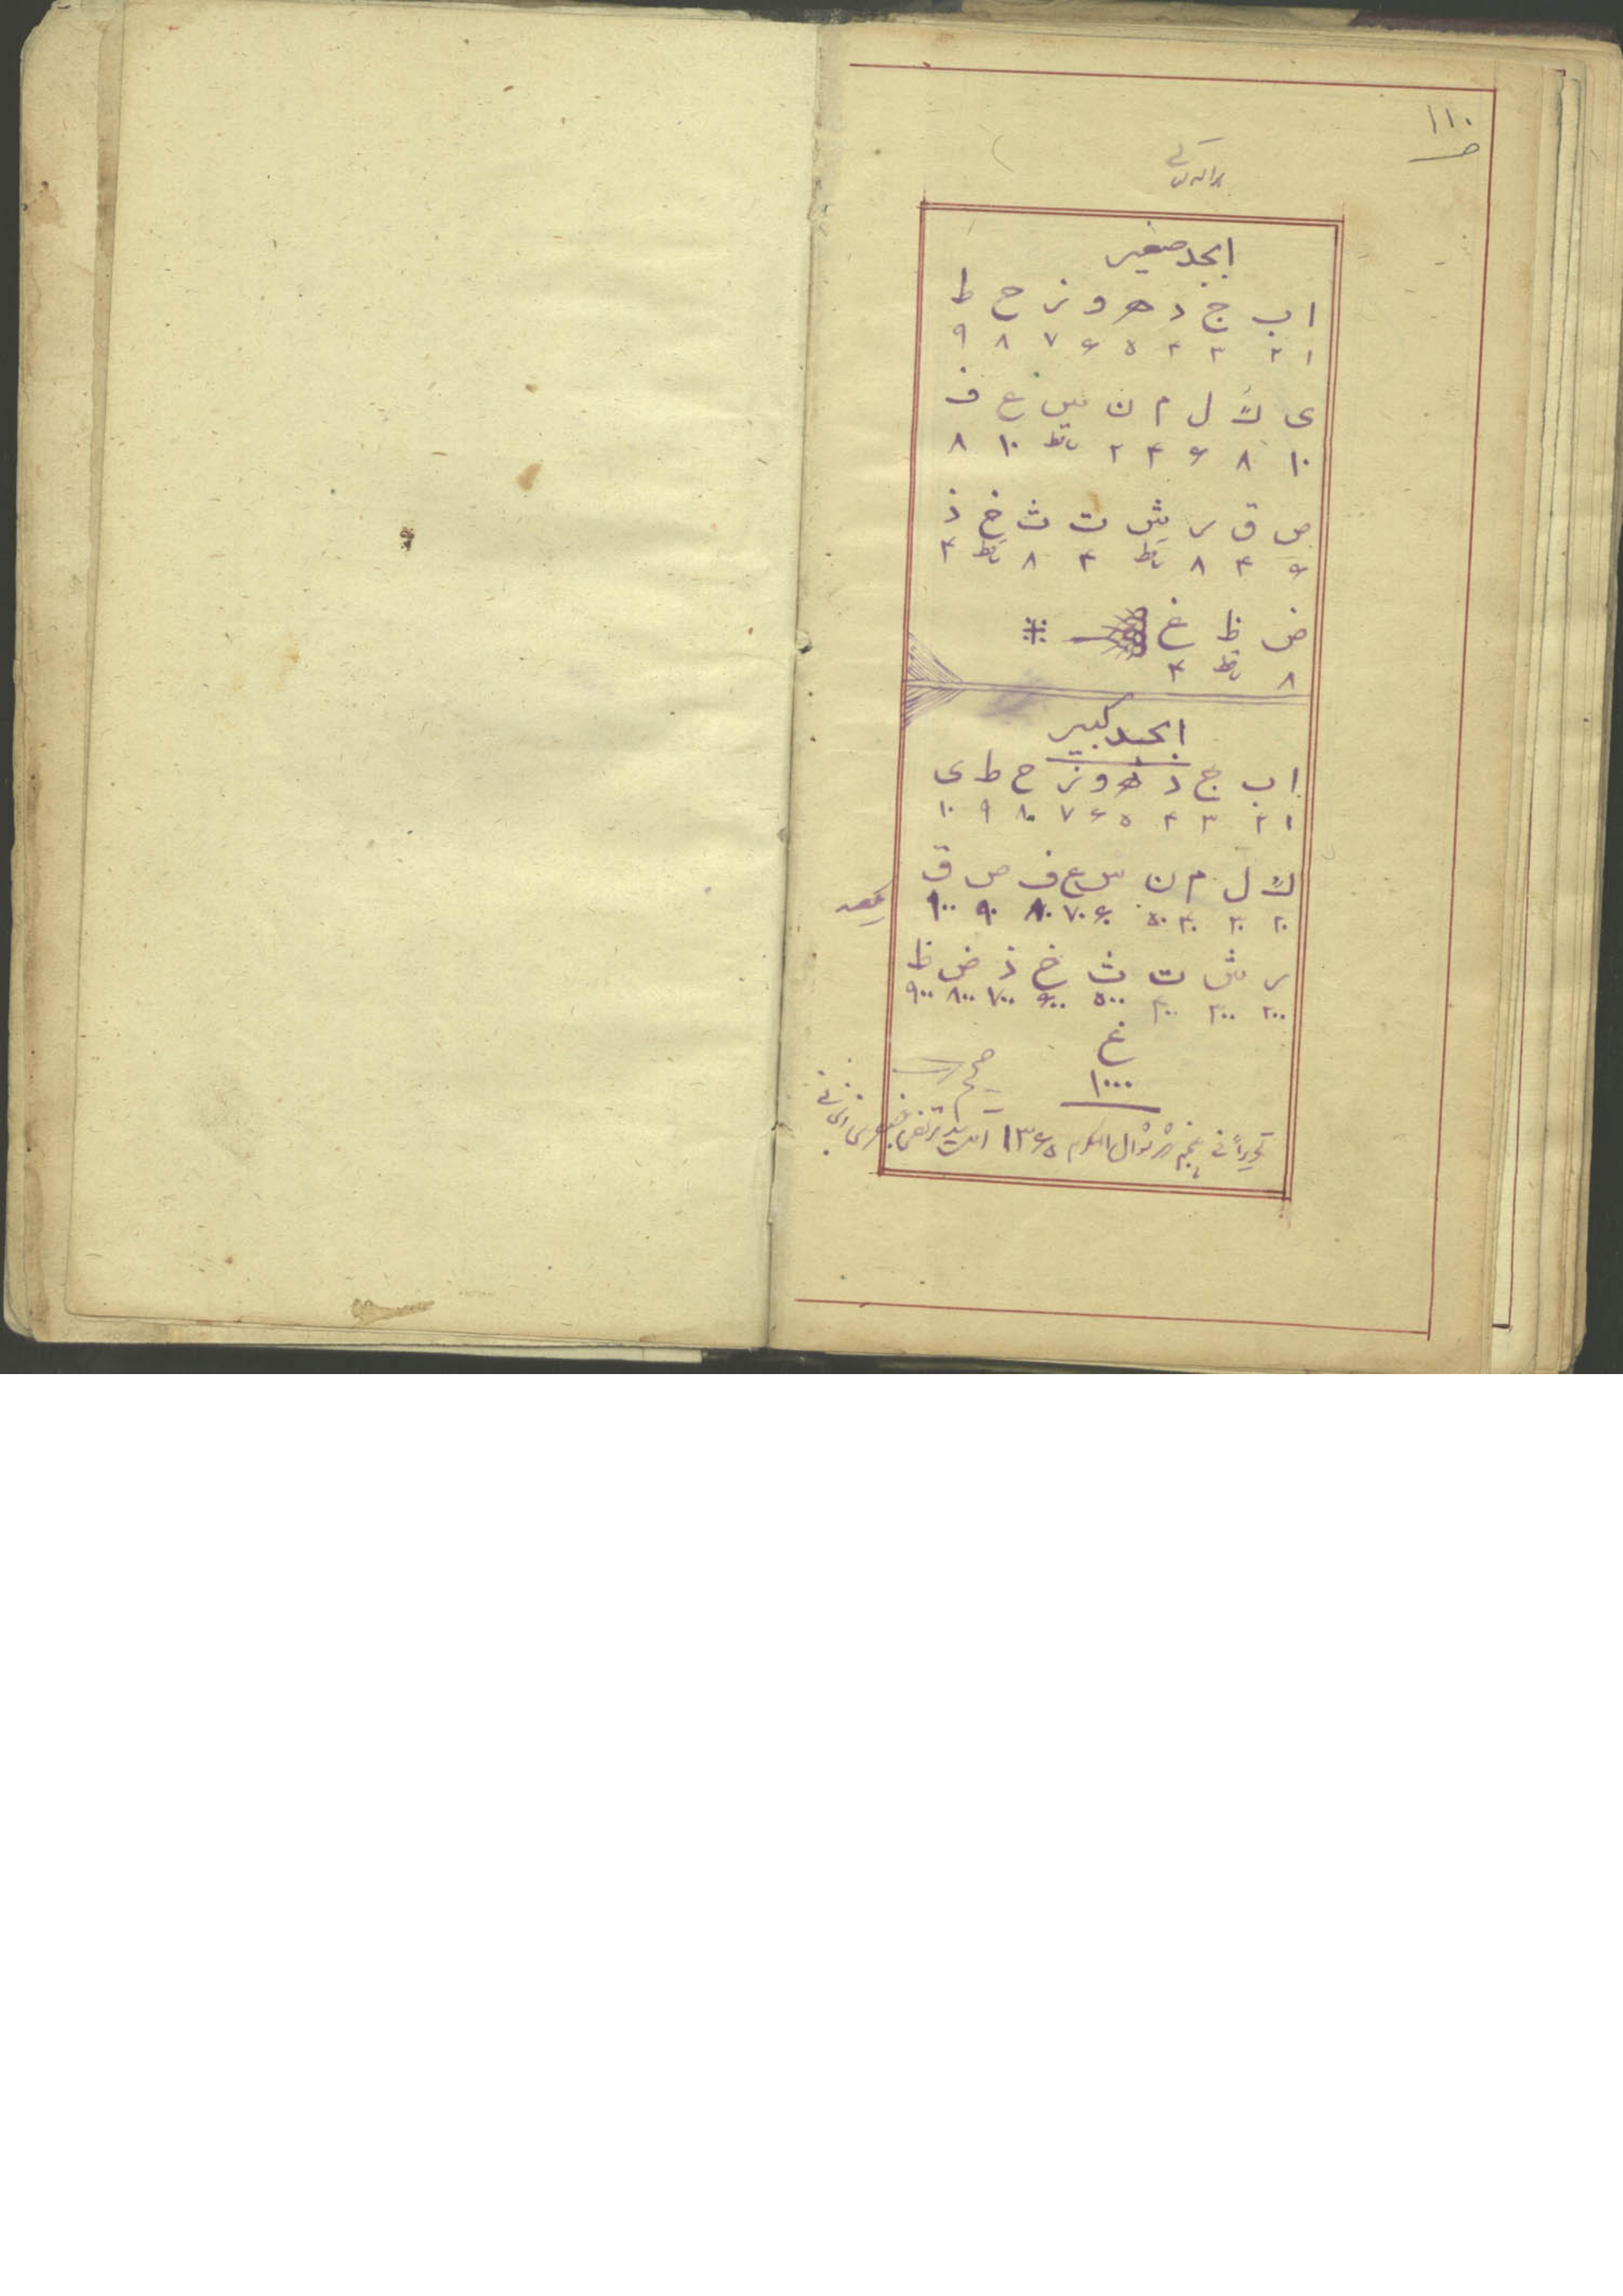 ۱۱۰
ص
ابجد صغیر
ا ب ج د ه و ز ح ط
۱ ۲ ۳ ۴ ۵ ۶ ۷ ۸ ۹
ی ک ل م ن س ع ف
۱۰ ۸ ۶ ۴ ۲ ساقط ۱۰ ۸
ص ق ر ش ت ث خ ذ
۶ ۴ ۸ ساقط ۴ ۸ ساقط ۴
ض ظ غ
۸ ساقط ۴
ابجد کبیر
ا ب ج د ه و ز ح ط ی
۱ ۲ ۳ ۴ ۵ ۶ ۷ ۸ ۹ ۱۰
ک ل م ن س ع ف ص ق
۲۰ ۳۰ ۴۰ ۵۰ ۶۰ ۷۰ ۸۰ ۹۰ ۱۰۰
ر ش ت ث خ ذ ض ظ
۲۰۰ ۳۰۰ ۴۰۰ ۵۰۰ ۶۰۰ ۷۰۰ ۸۰۰ ۹۰۰
غ
۱۰۰۰
صحیح است
تحریراً فی پنجم شهر شوال المکرم ۱۳۶۵ السید مرتضی